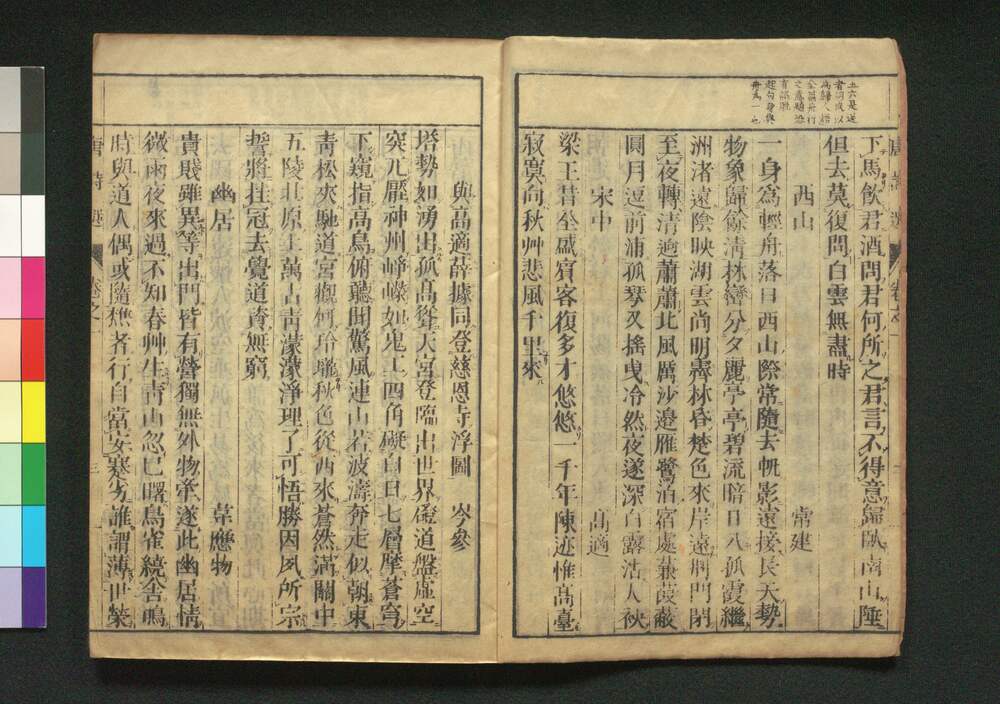 下馬飮君酒問君何所之君言不得意歸臥南山陲
但去莫復問白雲無盡時
西山　常建
一身爲輕舟落日西山際常隨去帆影遠接長天勢
物象歸餘淸林巒分夕麗亭亭碧流暗日入孤霞繼
洲渚遠陰映湖雲尚明霽林昏楚色來岸遠荆門閉
至夜轉淸逈蕭蕭北風厲沙邊雁鷺泊宿處蒹葭蔽
圓月逗前浦孤琴又搖曳泠然夜遂深白露沾人袂
宋中　高適
梁王昔全盛賓客復多才悠悠一千年陳迹惟高臺
寂寞向秋艸悲風千里來
與高適薛據同登慈恩寺浮圖　岑參
塔勢如湧出孤高聳天宮登臨出世界磴道盤虛空
突兀壓神州崢嶸如鬼工四角礙白日七層摩蒼穹
下窺指高鳥俯聽聞驚風連山若波濤奔走似朝東
靑松夾馳道宮觀何玲瓏秋色從西來蒼然滿關中
五陵北原上萬古靑濛濛淨理了可悟勝因夙所宗
誓將挂冠去覺道資無窮
幽居　韋應物
貴賤雖異等出門皆有營獨無外物牽遂此幽居情
微雨夜來過不知春艸生靑山忽已曙鳥雀繞舍鳴
時與道人偶或隨樵者行自當安蹇劣誰謂薄世榮
唐詩選　卷之一　三